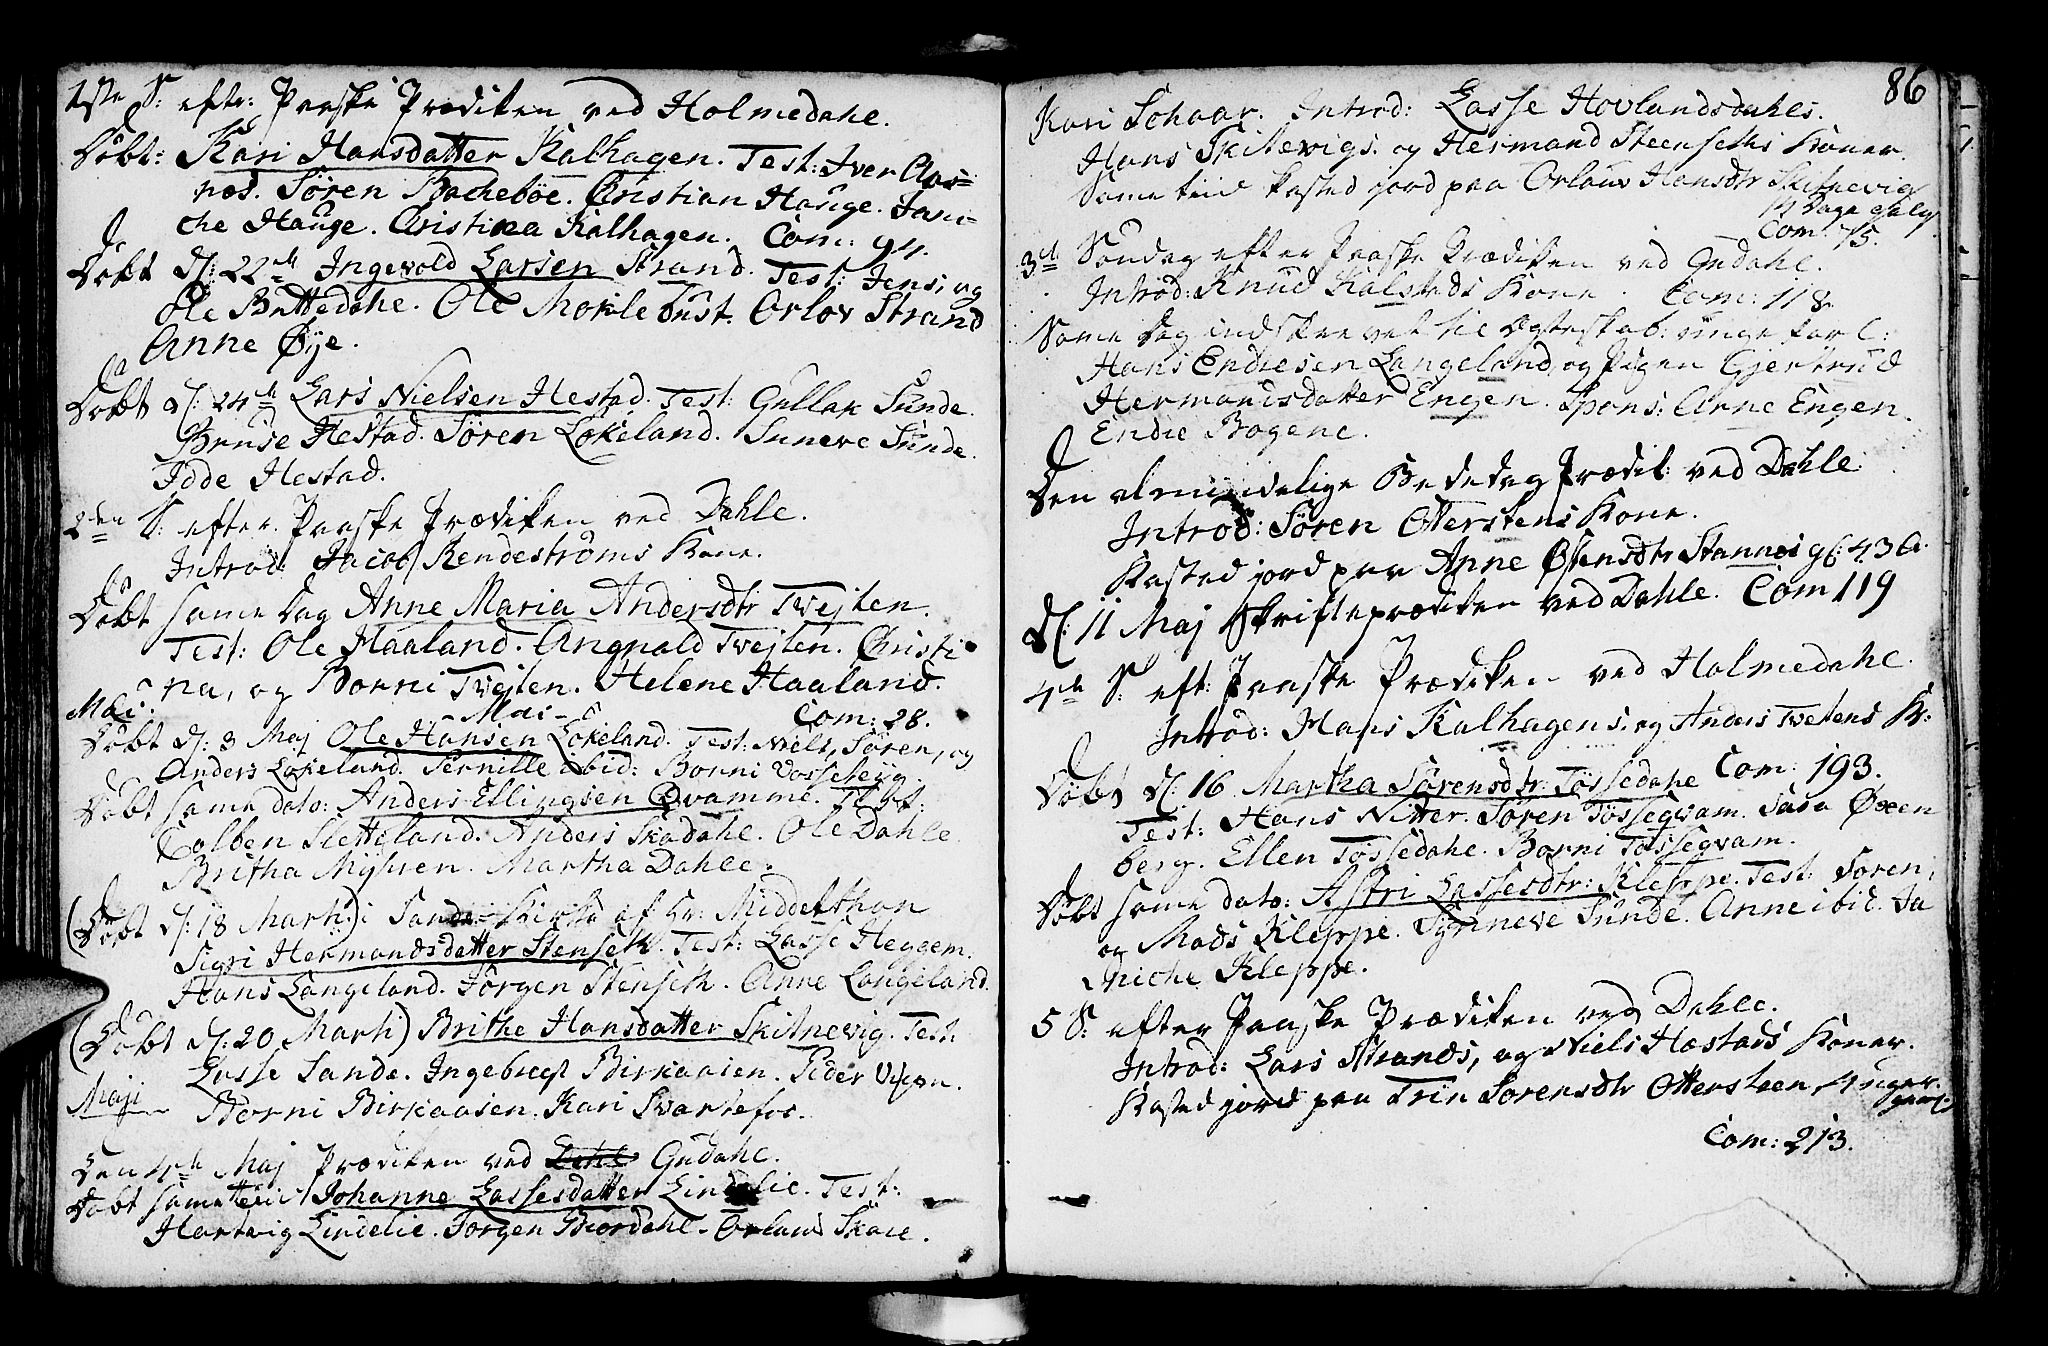 1ste S: efter: Paaske Prædiken ved Holmedahl.
Döbt: Kari Hansdatter Kalhagen. Test: Iver Aas=
næs. Sören Bacheböe. Christian Hauge. Jani=
che Hauge. Christina Kalhagen. Com: 94.
Döbt d: 22de Ingevold Larsen Strand. Test: Jens, og
Ole Buttedahl. Ole Mokletust. Orlov Strand
Anne Øye.
Döbt d: 24de Lars Nielsen Hestad. Test: Gullak Sunde.
Bruse Hestad. Sören Lökeland. Suneve Sunde.
Idde Hestad.
2den S: efter Paaske Prædiken ved Dahle.
Introd: Jacob Rendeströms Kone.
Döbt same Dag Anne Maria Andersdtr Tvejten.
Test: Ole Haaland. Angnald Tvejten. Christi
na, og Borni Tvejten. Helene Haaland.
Mai. - Mai - Com: 28.
Döbt d: 3 Maj Ole Hansen Lökeland. Test: Niels, Sören, og
Anders Lökeland. Pernille ibid: Borni Vosseteÿg.
Döbt same dato: Anders Ellingsen Qvamme. Test:
Colben Sletteland. Anders Skadahl. Ole Dahle
Britha Mysren. Martha Dahle.
(Döbt d: 18 Marti) i Sande Kirke af Hr: Middelthon
Sigri Hermandsdatter Stenseth. Test: Lasse Heggem.
Hans Langeland. Jörgen Stenseth. Anne Langeland.
(Döbt d: 20 Marti) Brithe Hansdatter Skilnevig. Test:
Lasse Sande. Ingebregt Birkaasen. Peder
Maji Borni Birkaasen. Kari Svartefos.
Den 4de Maj Prædiken ved Gudahl.
Döbt same Johanne Lassesdatter Lindelie. Test:
Hartvig Lindelie. Jörgen Biordahl. Orland Skare.
86
Kari Schaar. Introd: Lasse Hovlandsdahls.
Hans Skilevigs. og Hermand Steenseths Koner.
Same tiid kasted jord paa Orlaug Hansdtr Skilnevig
14 Dage gl.
Com: 75.
3de Söndag efter Paaske Prædiken ved Gudahl.
Introd: Knud Kalstads Kone. Com: 118
Same Dag indskrevet til Ægteskab: unge karl:
Hans Endresen Langeland, og Pigen Gjertrud
Hermandsdatter Engen. Spons: Arne Engen.
Endre Bogene.
Den almindelige Bededag Prædik: ved Dahle.
Introd: Sören Ottersteens Kone.
Kasted jord paa Anne Østensdtr Stannes gl: 43 A.
d: 11 Maj Skrifteprædiken ved Dahle. Com 119
4de S: eft: Paaske Prædiken ved Holmedahl.
Introd: Hans Kalhagens. og Anders Tvetens K:
Döbt d: 16 Martha Sörensdtr. Tössedahl Com: 193.
Test: Hans Nitter. Sören Tössegvam. Sara Øxen
berg. Ellen Tössedahl. Borni Tössegvam.
Döbt same dato: Astri Lassesdtr: Kleppe. Test: Sören,
og Mads Kleppe. Synneve Sunde. Anne ibid. Ja
niche Kleppe.
5 S: efter Paaske Prædiken ved Dahle.
Introd: Lars Strands, og Niels Hæstads Koner.
Kasted jord paa Trin Sörensdtr Ottersteen, 4 uger
gaml.
Com: 213.